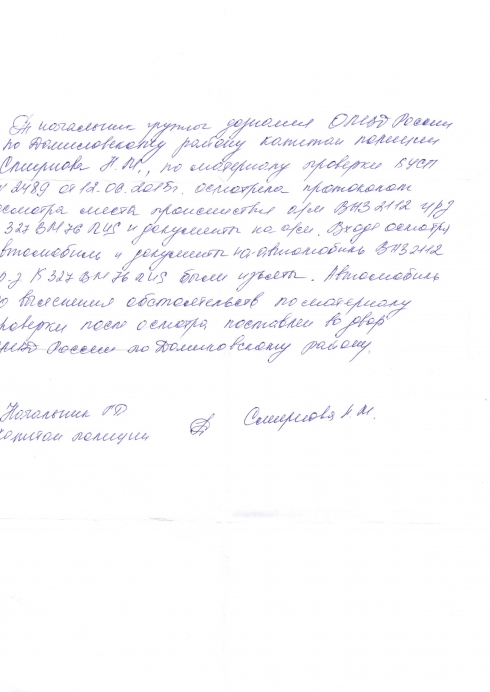 Я начальник группы дознания ОМВД России
по Даниловскому району капитан полиции
Смирнова Н.М., по материалу проверки КУСП
№ 2489 от 12.06.2015г. осмотрела протоколом
осмотра места происшествия а/м ВАЗ 2112 г/р/з
К 327 ВМ 76 RUS и документы на а/м. В ходе осмотра
автомобиль и документы на автомобиль ВАЗ 2112
г.р.з К 327 ВМ 76 RUS были изъяты. Автомобиль
до выяснения обстоятельств по материалу
проверки после осмотра поставлен во двор
ОМВД России по Даниловскому району.
Начальник ГД
капитан полиции Смирнова Н.М.